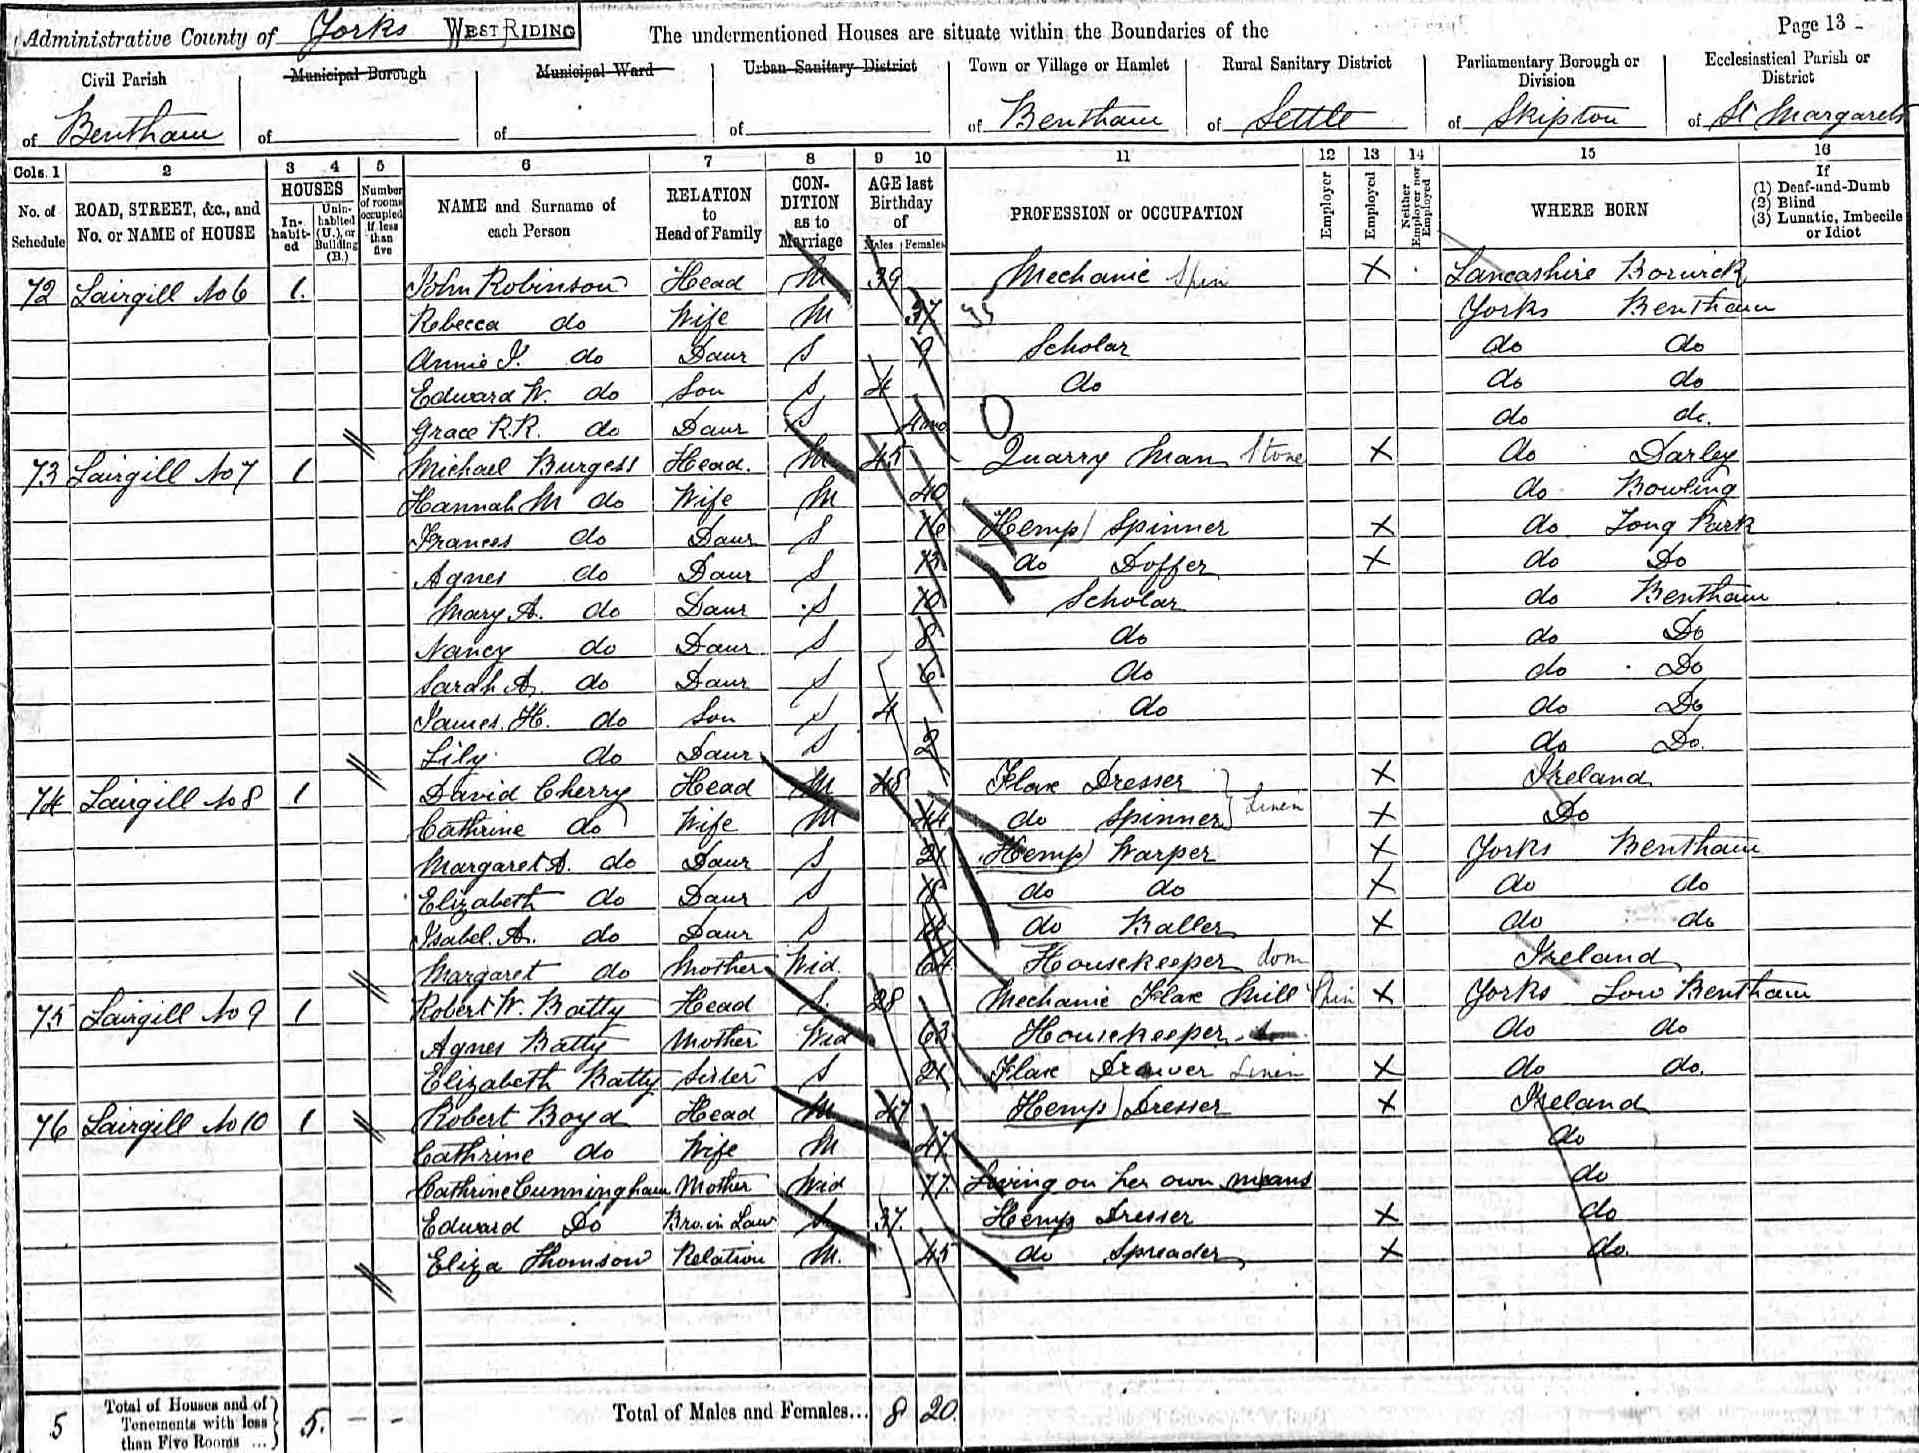 Administrative County of Yorks WEST RIDING The undermentioned Houses are situate within the Boundaries of the Page 13
Civil Parish Municipal Borough Municipal Ward Urban Sanitary District Town or Village or Hamlet Rural Sanitary District Parliamentary Borough or Division Ecclesiastical Parish or District
of Bentham of of of of Bentham of Settle of Skipton of St Margarets
Cols. 1 2 3 4 5 6 7 8 9 10 11 12 13 14 15 16
No. of Schedule ROAD, STREET, &c., and No. or NAME of HOUSE HOUSES In-habit-ed Unin-habited (U.), or Building (B.) Number of rooms occupied if less than five NAME and Surname of each Person RELATION to Head of Family CON-DITION as to Marriage AGE last Birthday of Males Females PROFESSION or OCCUPATION Employer Employed Neither Employer nor Employed WHERE BORN If (1) Deaf-and-Dumb (2) Blind (3) Lunatic, Imbecile or Idiot
72 Lairgill No 6 1 John Robinson Head M 39 Mechanic Spin X Lancashire Borwick
Rebecca do Wife M 37 Yorks Bentham
Annie I. do Daur S 9 Scholar do do
Edward W. do Son S 4 do do do
Grace R.R. do Daur S 4mo do do
73 Lairgill No 7 1 Michael Burgess Head. M 45 Quarry Man Stone X do Darley
Hannah M do Wife M 40 do Bowling
Frances do Daur S 16 Hemp Spinner X do Long Park
Agnes do Daur S 13 do Doffer X do Do
Mary A. do Daur S 10 Scholar do Bentham
Nancy do Daur S 8 do do Do
Sarah A. do Daur S 6 do do Do
James. H. do Son S 4 do do Do
Lily do Daur S 2 do Do.
74 Lairgill No 8 1 David Cherry Head M 48 Flax Dresser X Ireland
Cathrine do Wife M 44 do Spinner Linen X Do
Margaret A. do Daur S 21 Hemp Warper X Yorks Bentham
Elizabeth do Daur S 18 do do X do do
Isabel. A. do Daur S do Baller X do do
Margaret do Mother Wid. 64 Housekeeper dom Ireland
75 Lairgill No 9 1 Robert W. Batty Head S. 28 Mechanic Flax Mill Spin X Yorks Low Bentham
Agnes Batty Mother Wid 63 Housekeeper do do
Elizabeth Batty Sister S 21 Flax Drawer Linen X do do.
76 Lairgill No 10 1 Robert Boyd Head M 47 Hemp Dresser X Ireland
Cathrine do Wife M 47 do
Cathrine Cunningham Mother Wid 77 Living on her own means do
Edward Do Bro. in Law S 37 Hemp Dresser X do
Eliza Thomson Relation M. 45 do Spreader X do.
5 Total of Houses and of Tenements with less than Five Rooms ... 5. - - Total of Males and Females... 8 20